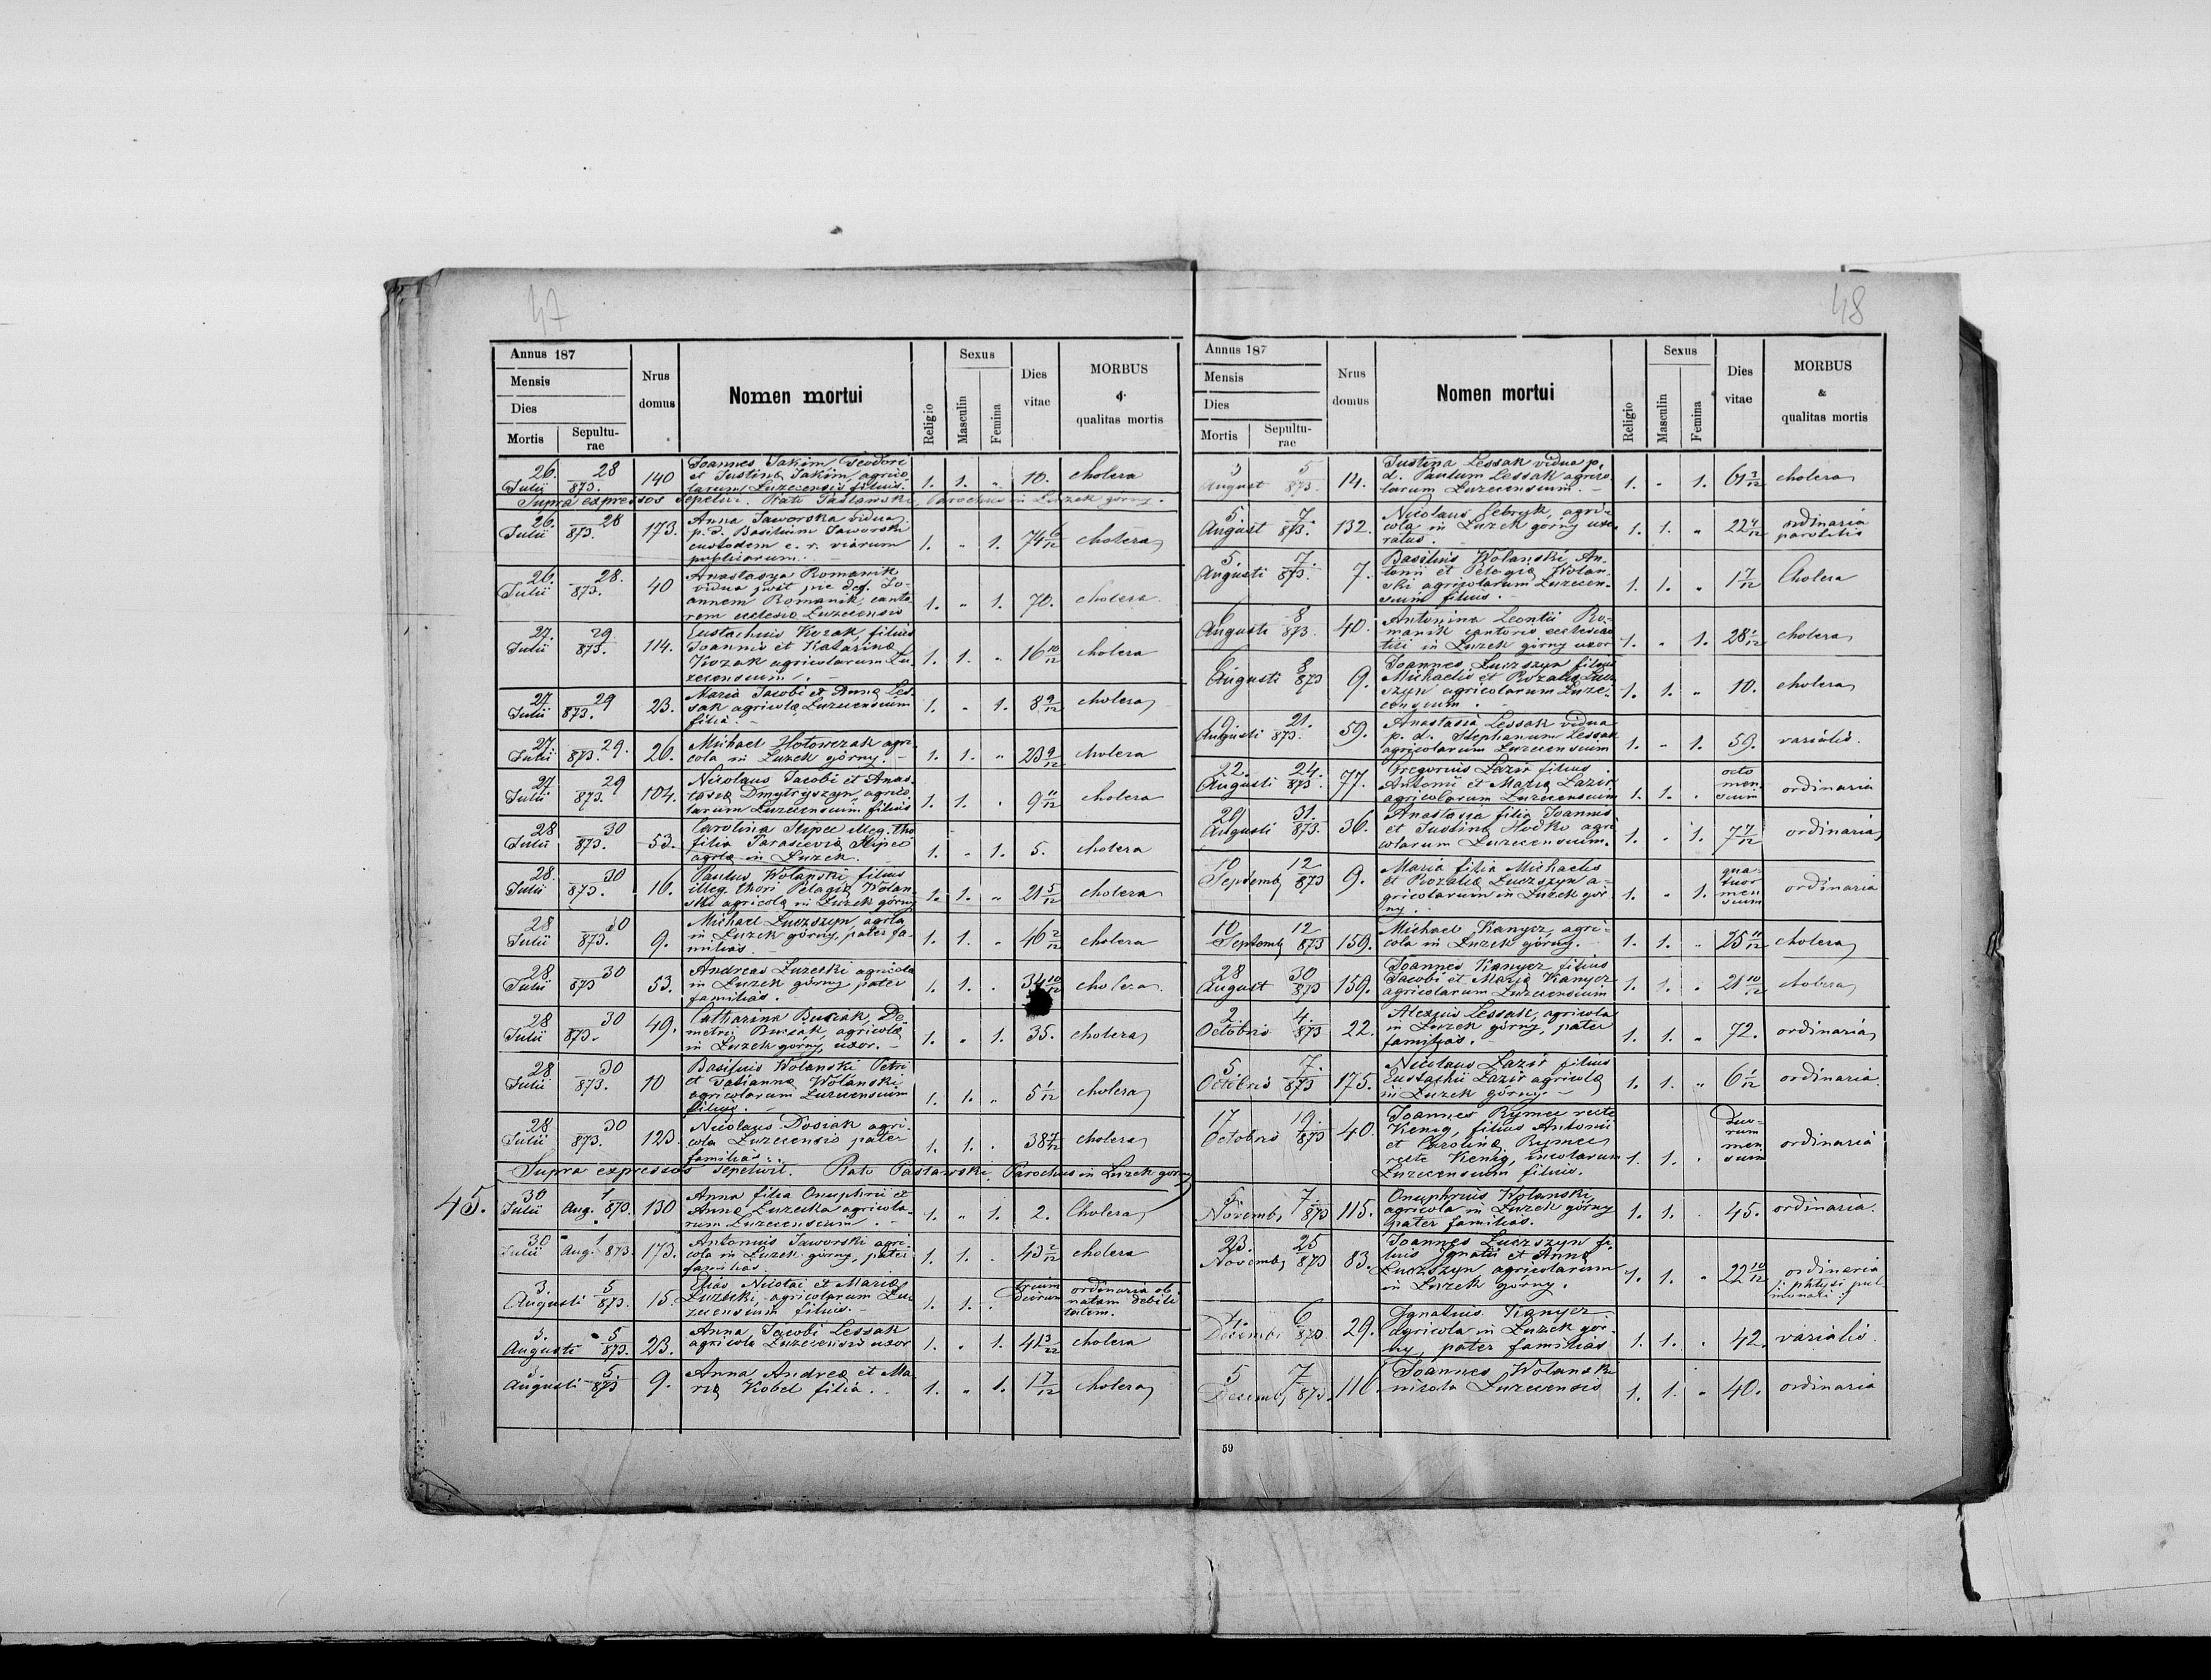 47
Annus 187
Mensis
Dies
Mortis Sepultu-
rae
Nrus
domus
Nomen mortui
Religio
Sexus
Masculin
Femina
Dies
vitae
MORBUS
&
qualitas mortis
26. Julii 28/873. 140 Joannes Jakim Teodori
et Justinę Jakim, agrico
larum Luzecensis filius. 1. 1. „ 10. cholera
Supra expressos sepelivi. Rato Pasławski, Parochus in Łuzek górny.
26. Julii 28/873. 173. Anna Jaworska vidua
p. d. Basilium Jaworski
custodem c. r. viarum
publicarum. 1. „ 1. 74 6/12 cholera
26. Julii 28./873. 40 Anastasya Romanik
vidua post pie def. Jo-
annem Romanik, canto-
rem eclesię Luzecensis 1. „ 1. 70. cholera
27. Julii 29/873. 114. Eustachius Kozak, filius
Joannis et Katarinę
Kozak agricolarum Lu-
zecensium. 1. 1. „ 16 10/12 cholera
27 Julii 29/873. 23. Maria Jacobi et Annę Les-
sak agricolę Luzecensium
filia. 1. „ 1. 8 9/12 cholera
27 Julii 29./873. 26. Michael Hotowczak agri-
cola in Łuzek górny. 1. 1. „ 23 9/12 cholera
27 Julii 29/873. 104. Nicolaus Jacobi et Anas-
tasię Dmytryszyn, agrico
larum Luzecensium filius 1. 1. „ 9 11/12 cholera
28 Julii 30/873. 53. Carolina Stipec illeg. tho
filia Parascevię Stipec
agrlę in Łuzek. 1. „ 1. 5. cholera
28. Julii 30/873. 16. Paulus Wolanski, filius
illeg. thori Pelagię Wolan-
ski agricolę in Łuzek górny 1. 1. „ 21 5/12 cholera
28 Julii 30/873. 9. Michael Łuczszyn, agrla
in Łuzek górny, pater fa-
milias. 1. 1. „ 46 2/12 cholera
28 Julii 30/873 53. Andreas Łuzecki agricola
in Łuzek górny pater
familias. 1. 1. . 34 10/12 cholera.
28 Julii 30/873. 49. Catharina Busiak, De-
metri Busiak, agricolę
in Łuzek górny, uxor. 1. „ 1. 35. cholera
28 Julii 30/873. 10 Basilius Wolanski Petri
et Tatiannę Wolanski
agricolarum Luzecensium
filius. 1. 1. „ 5 1/12 cholera
28 Julii 30/873. 123. Nicolaus Dosiak agri-
cola Luzecensis pater
familias. 1. 1. . 38 7/12 cholera
Supra expressos sepelivi. Rato Pasławski, Parochus in Łuzek górny
45.
30 Julii Aug. 1/873. 130 Anna filia Onuphrii et
Annę Łuzecka agricola-
rum Luzecensium. 1. „ 1. 2. Cholera
30 Julii Aug. 1/873. 173. Antonius Jaworski agri-
cola in Łuzek górny, pater
familias. 1. 1. . 43 2/12 cholera
3. Augusti 5/873. 15. Elias Nicolai et Marię
Łuzecki agricolarum Lu-
zecensium filius. 1. 1. . trium
dierum ordinaria ob
natam debili
tatem.
3. Augusti 5/873. 23. Anna Jacobi Lessak
agricolę Luzecensis uxor 1. „ 1. 41 3/12 cholera
3. Augusti 5/873 9. Anna Andreę et Ma-
rię Kobel filia. 1. „ 1. 1 7/12 cholera
48
Annus 187
Mensis
Dies
Mortis Sepultu-
rae
Nrus
domus
Nomen mortui
Religio
Sexus
Masculin
Femina
Dies
vitae
MORBUS
&
qualitas mortis
3 August 5/873. 14. Justina Lessak vidua p.
d. Paulum Lessak agrico-
larum Luzecensium. 1. „ 1. 61 2/12 cholera
5 August 7./873. 132. Nicolaus Sebryk, agri-
cola in Łuzek górny uxo-
ratus. 1. 1. „ 22 4/12 ordinaria
parotitis
5 Augusti 7./873. 7. Basilius Wolanski, An-
tonii et Pelagię Wolan-
ski agricolarum Luzecen-
sium filius. 1. 1. „ 1 7/12 Cholera
6 Augusti 8/873. 40. Antonina Leontii Ro-
manik cantoris ecclesias
tici in Łuzek górny uxor 1. „ 1. 28 1/12 cholera
6 Augusti 8/873 9. Joannes Łuczszyn filius
Michaelis et Rozalię Łucz-
szyn agricolarum Luze-
censium. 1. 1. „ 10. cholera
19 Augusti 21./873. 59. Anastasia Lessak vidua
p. d. Stephanum Lessak
agricolarum Luzecensium 1. „ 1. 59. variolis.
22. Augusti 24./873. 77. Gregorius Lazir filius
Antonii et Marię Lazir
agricolarum Luzecensium 1. 1. . octo
men-
sium ordinaria
29 Augusti 31./873. 36. Anastasia filia Joannis
et Justinę Hodko agri
colarum Luzecensium. 1. „ 1. 7 7/12 ordinaria
10 Septemb 12/873 9. Maria filia Michaelis
et Rozalię Łuczszyn a-
gricolarum in Łuzek gór
ny. 1. „ 1. qua-
tuor
men
sium ordinaria
10 Septemb 12/873 159. Michael Kanycz, agri-
cola in Łuzek górny. 1. 1. „ 25 11/12 cholera
28 August 30/873 159. Joannes Kanycz filius
Jacobi et Marię Kanycz
agricolarum Luzecensium 1. 1. „ 21 10/12 cholera
2 Octobris 4./873 22. Alexius Lessak, agricola
in Łuzek górny, pater
familias. 1. 1. „ 72. ordinaria
5 Octobris 7./873 175. Nicolaus Lazir filius
Eustachii Lazir agricolę
in Łuzek górny. 1. 1. „ 6 1/12 ordinaria.
17 Octobris 19./873 40 Joannes Rymec recte
Kenig, filius Antonii
et Carolinę Rymec
recte Kenig, incolarum
Luzecensium filius. 1. 1. . Duo-
rum
men
sium ordinaria
5 Novemb. 7./873 115. Onuphrius Wolanski,
agricola in Łuzek górny
pater familias. 1. 1. . 45. ordinaria.
23. Novemb 25/873 83. Joannes Łuczszyn fi-
lius Ignatii et Annę
Łuczszyn agricolarum
in Łuzek górny. 1. 1. „ 22 10/12 ordinaria
|: phtysi pul-
monari :|
4. Decembr 6/873 29. Ignatius Kanycz
agricola in Łuzek gór-
ny, pater familias 1. 1. . 42. variolis.
5 Decemb. 7/873. 116 Joannes Wolanski
incola Luzecensis 1. 1. „ 40. ordinaria
59